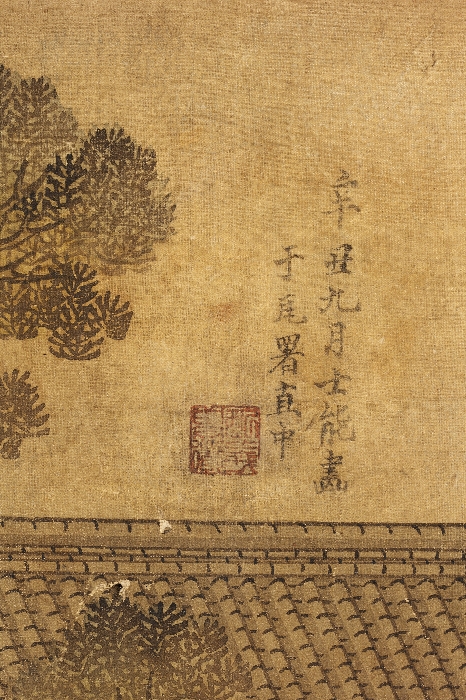 辛丑九月士能畵
于瓦署直中